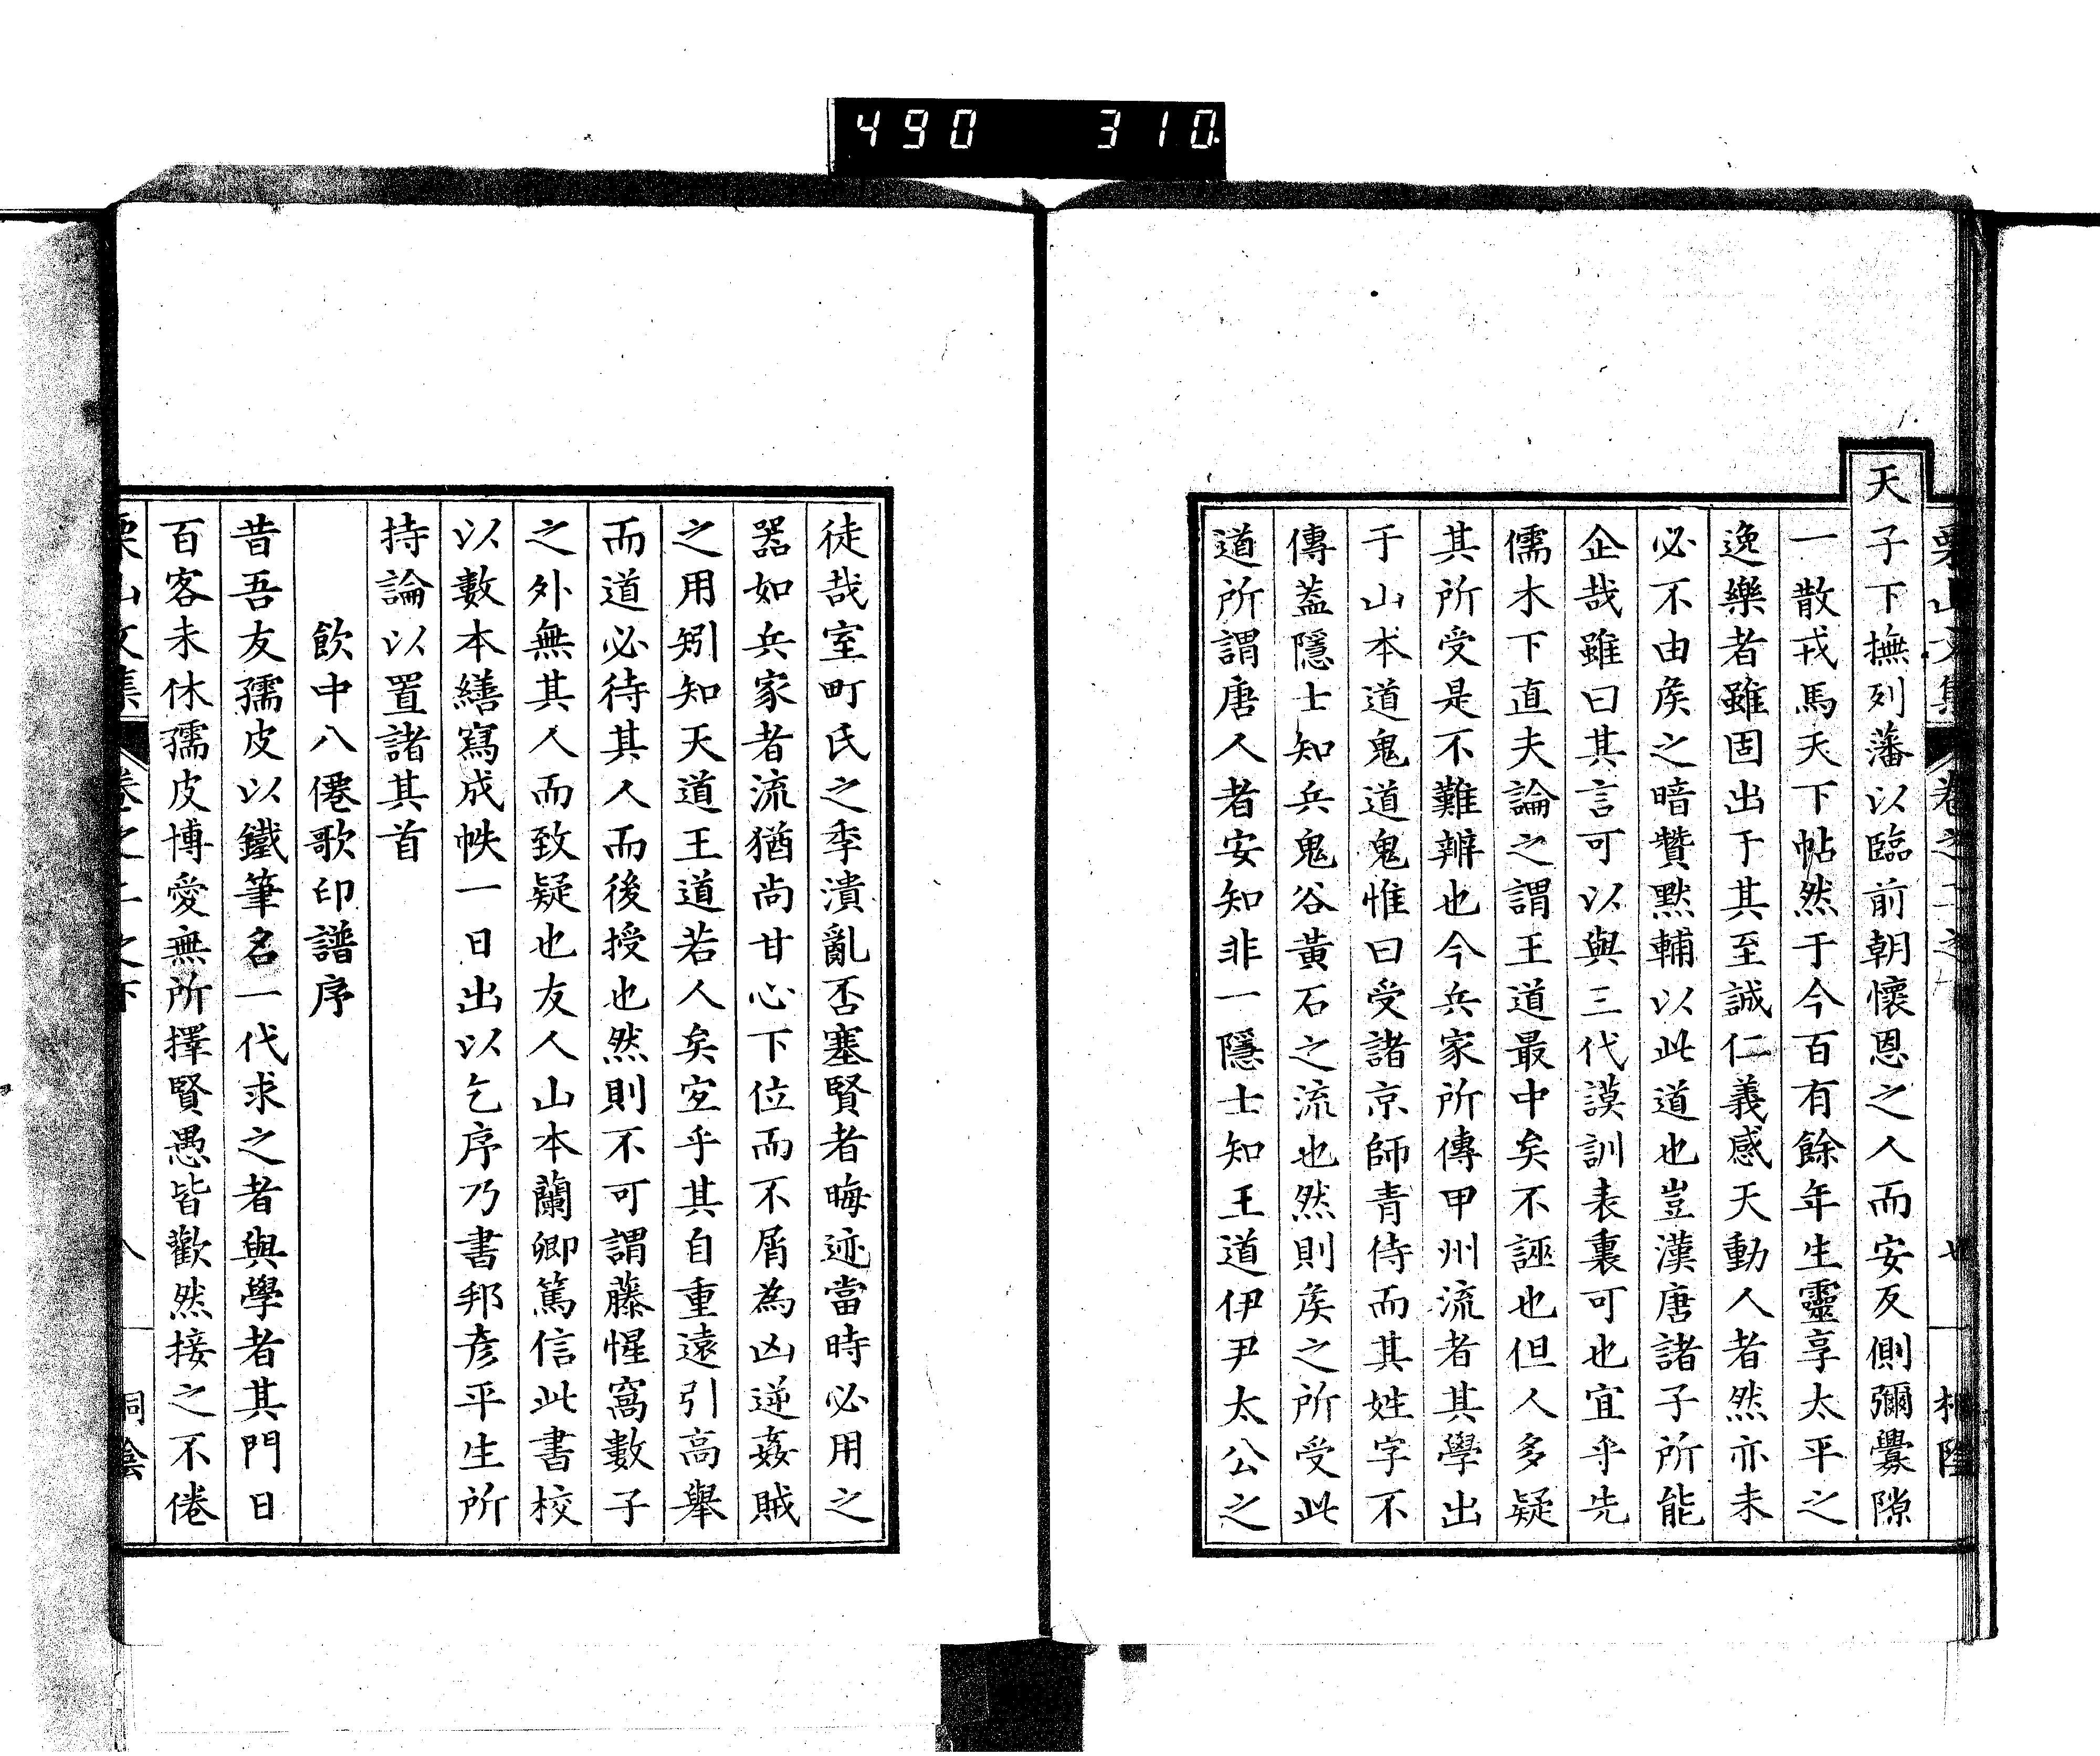 490 310
栗山文集 卷之二之下 七
天子下撫列藩以臨前朝懷恩之人而安反側彌釁隙
一散戎馬天下帖然于今百有餘年生靈享太平之
逸樂者雖固出于其至誠仁義感天動人者然亦未
必不由矦之暗贊默輔以此道也豈漢唐諸子所能
企哉雖曰其言可以與三代謨訓表裏可也宜乎先
儒木下直夫論之謂王道最中矣不誣也但人多疑
其所受是不難辨也今兵家所傳甲州流者其學出
于山本道鬼道鬼惟曰受諸京師青侍而其姓字不
傳蓋隱士知兵鬼谷黃石之流也然則矦之所受此
道所謂唐人者安知非一隱士知王道伊尹太公之
徒哉室町氏之季潰亂否塞賢者晦迹當時必用之
器如兵家者流猶尚甘心下位而不屑為凶逆姦賊
之用矧知天道王道若人矣宜乎其自重遠引高舉
而道必待其人而後授也然則不可謂藤惺窩數子
之外無其人而致疑也友人山本蘭卿篤信此書校
以數本繕寫成帙一日出以乞序乃書邦彥平生所
持論以置諸其首
飲中八僊歌印譜序
昔吾友孺皮以鐵筆名一代求之者與學者其門日
百客未休孺皮博愛無所擇賢愚皆歡然接之不倦
栗山文集 卷之二之下 八 桐陰